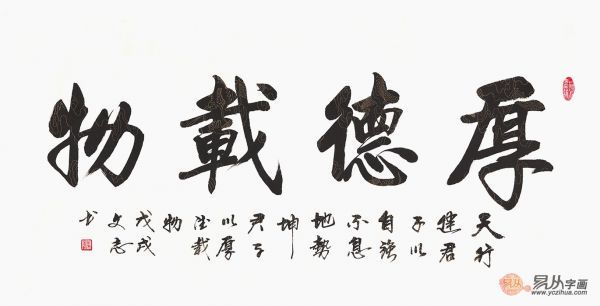 厚德載物
天行
健君
子以
自强
不息
地勢
坤
君子
以厚
德載
物
戊戌
文志
书
易从字画
www.yczihua.com